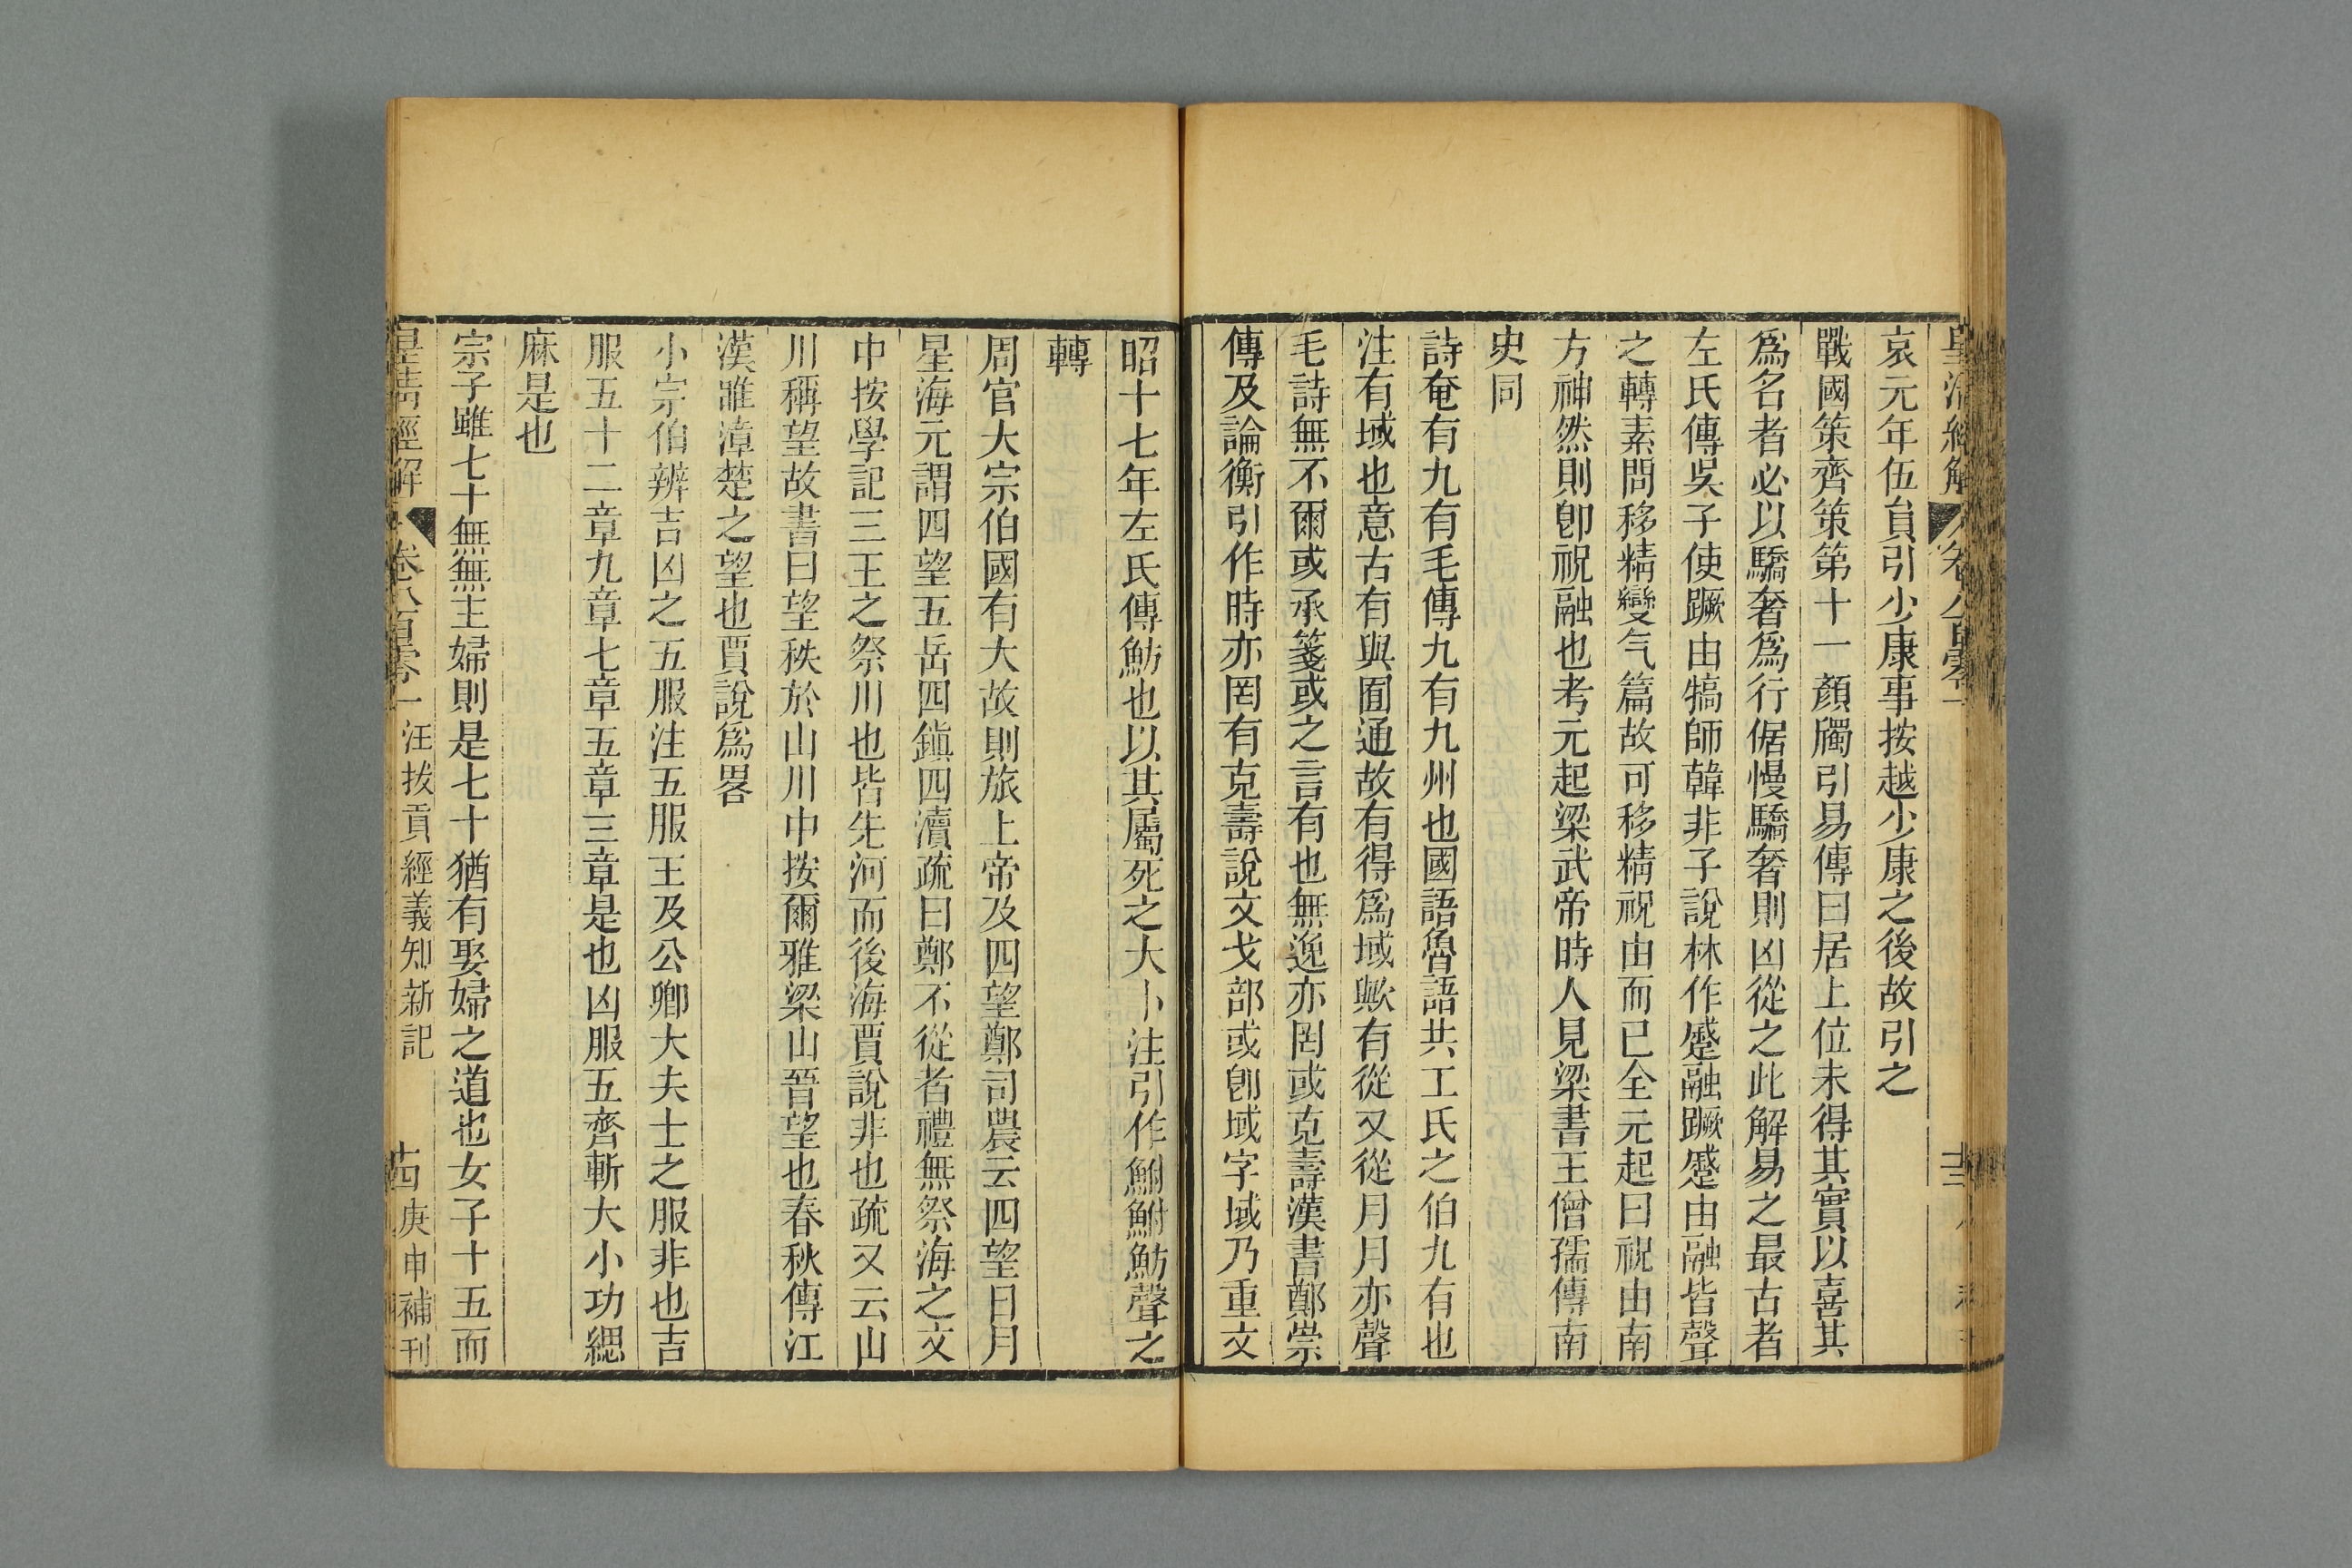 皇清經解 卷八百零一
哀元年伍員引少康事按越少康之後故引之
戰國策齊策第十一顏斶引易傳曰居上位未得其實以喜其
爲名者必以驕奢爲行倨慢驕奢則凶從之此解易之最古者
左氏傳吳子使蹶由犒師韓非子說林作蹷融蹶蹷由融皆聲
之轉素問移精變气篇故可移精祝由而已全元起曰祝由南
方神然則卽祝融也考元起梁武帝時人見梁書王僧孺傳南
史同
詩奄有九有毛傳九有九州也國語魯語共工氏之伯九有也
注有域也意古有與囿通故有得爲域歟有從又從月月亦聲
毛詩無不爾或承箋或之言有也無逸亦罔或克壽漢書鄭崇
傳及論衡引作時亦罔有克壽說文戈部或卽域字域乃重文
昭十七年左氏傳魴也以其屬死之大卜注引作鮒鮒魴聲之
轉
周官大宗伯國有大故則旅上帝及四望鄭司農云四望日月
星海元謂四望五岳四鎮四瀆疏曰鄭不從者禮無祭海之文
中按學記三王之祭川也皆先河而後海賈說非也疏又云山
川稱望故書曰望秩於山川中按爾雅梁山晉望也春秋傳江
漢雎漳楚之望也賈說爲畧
小宗伯辨吉凶之五服注五服王及公卿大夫士之服非也吉
服五十二章九章七章五章三章是也凶服五齊斬大小功緦
麻是也
宗子雖七十無無主婦則是七十猶有娶婦之道也女子十五而
皇淸經解 卷八百零一 汪拔貢經義知新記 古 庚申補刊